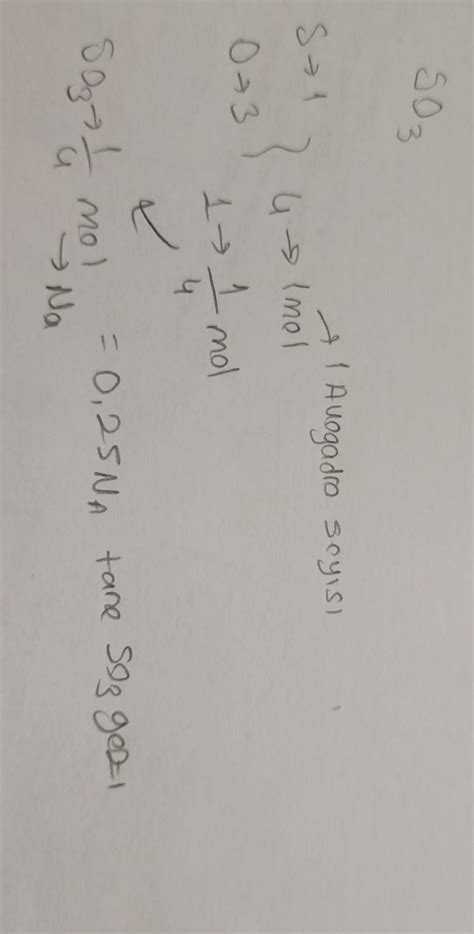 SO3
S → 1
O → 3 } 4 → 1 mol → 1 Avogadro sayısı
1 → 1/4 mol
SO3 → 1/4 mol = 0,25NA tane SO3 gazı
→ Na